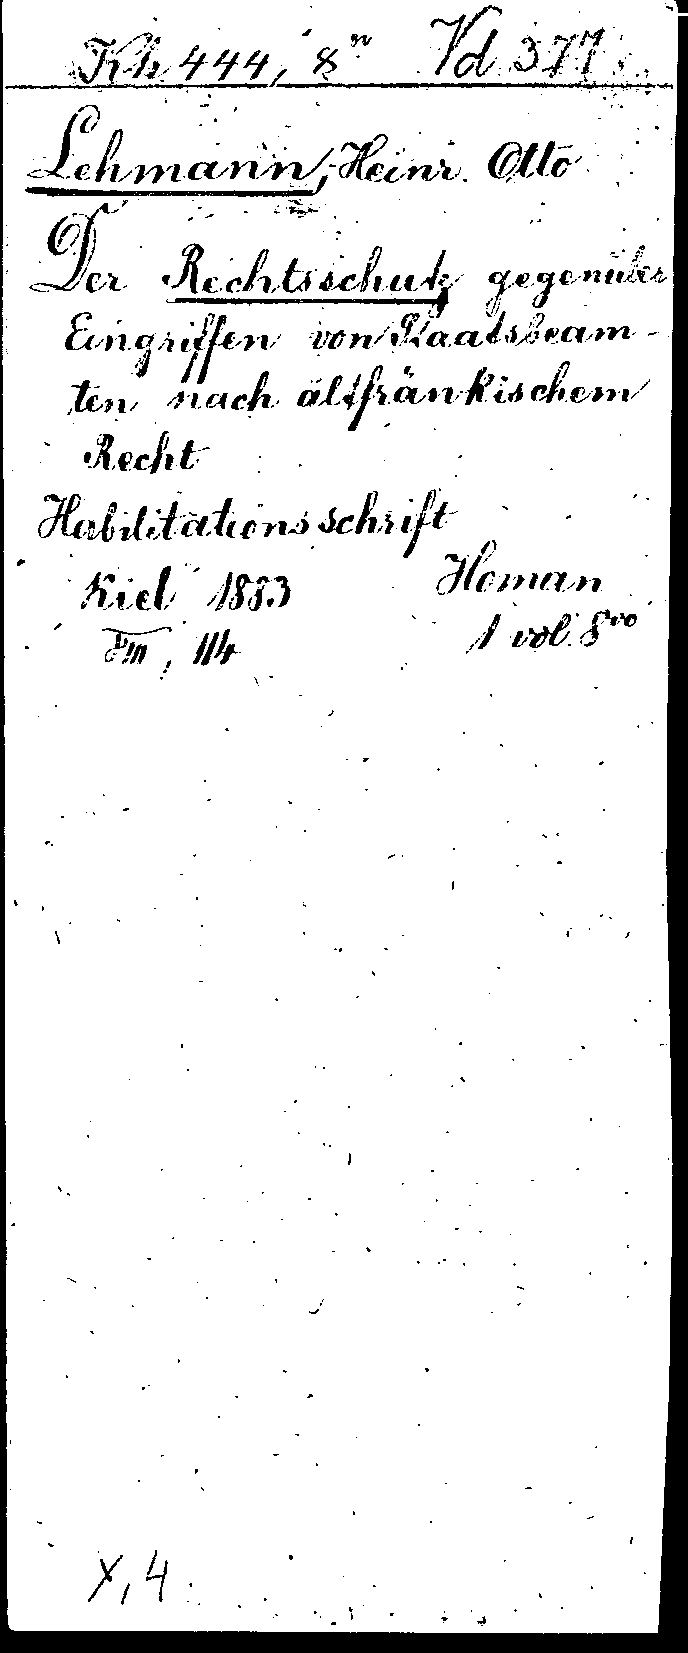 Kh 444, 8º Vd 377
Lehmann, Heinr. Otto
Der Rechtsschutz gegenüber
Eingriffen von Staatsbeam-
ten nach altfränkischem
Recht
Habilitationsschrift
Kiel 1883 Homan
VIII, 114 1 vol. 8vo
X, 4